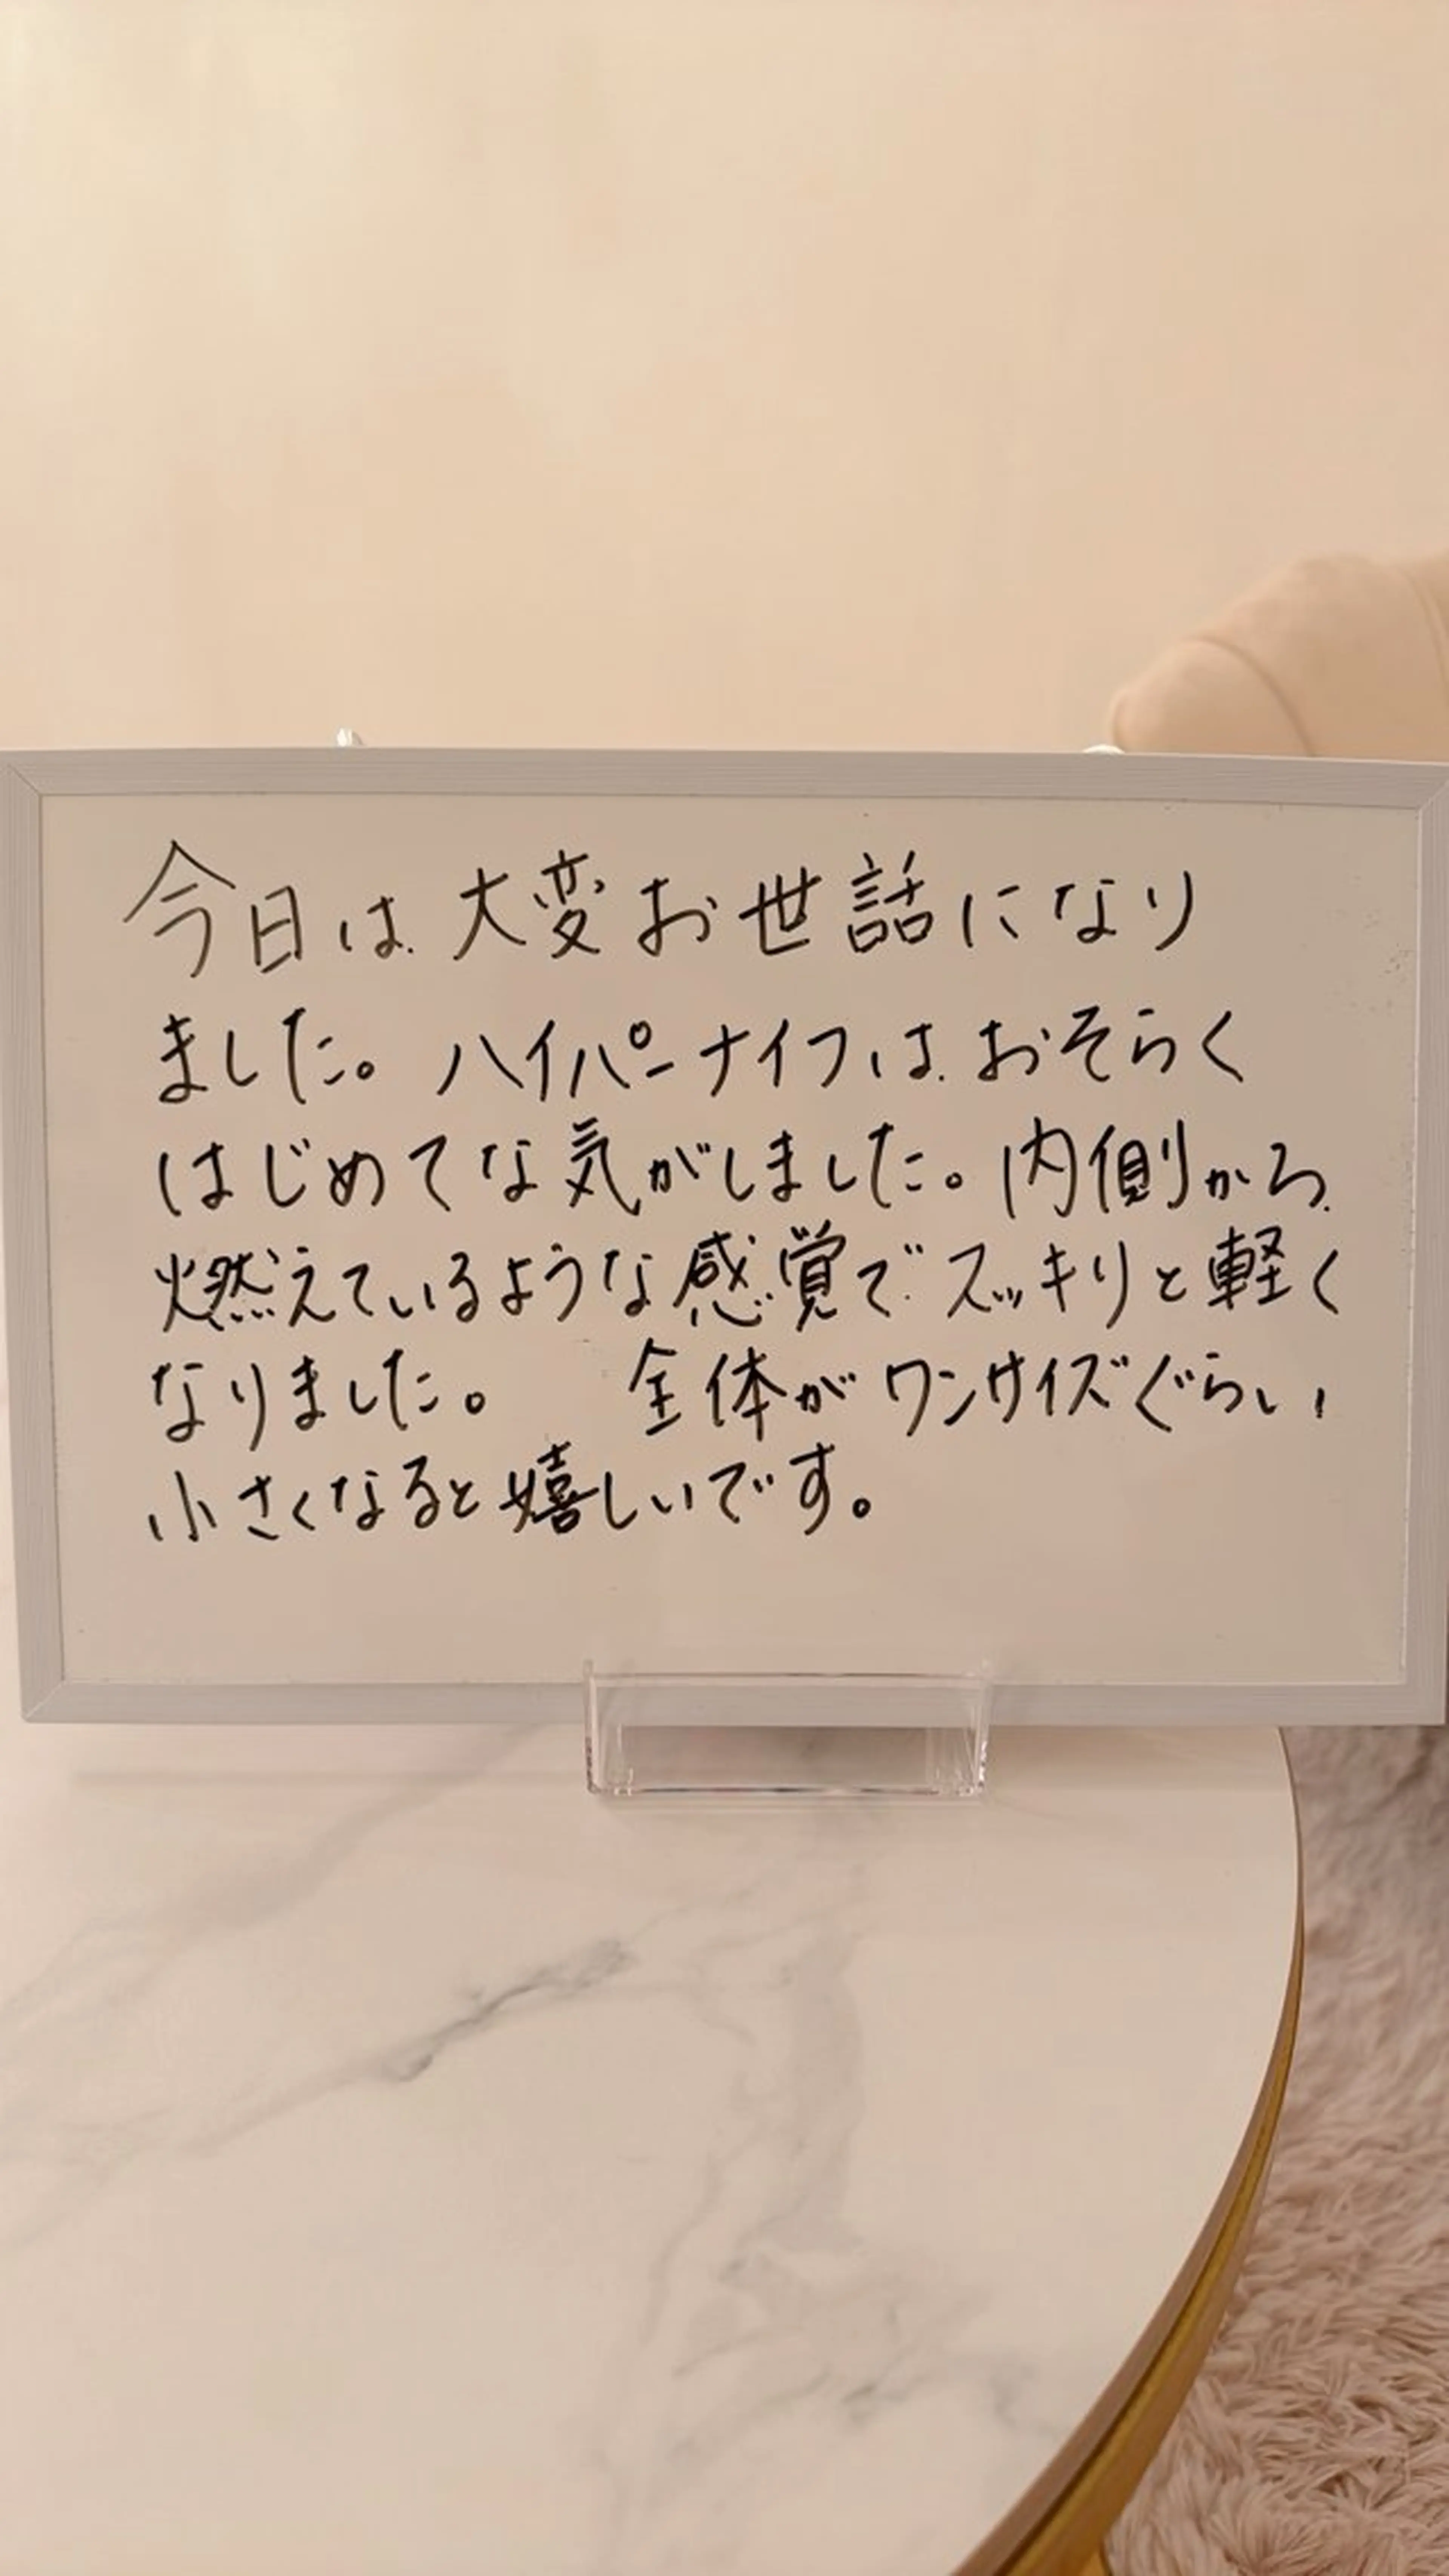 今日は大変お世話になり
ました。ハイパーナイフは おそらく
はじめてな気がしました。内側から
燃えているような感覚で スッキリと軽く
なりました。 全体が ワンサイズぐらい
小さくなると嬉しいです。